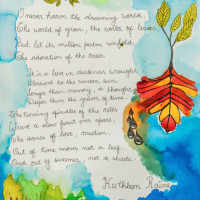 I never harm the dreaming world,
the world of green, the world of leaves,
But let its million palms unfold
the adoration of the trees.
It is a love in darkness wrought
Obedient to the unseen sun,
Longer than memory, a thought
Deeper than the graves of time.
The turning spindles of the cells
Weave a slow forest over space,
The dance of love, creation,
Out of time moves not a leaf,
And out of summer, not a shade.
Kathleen Raine